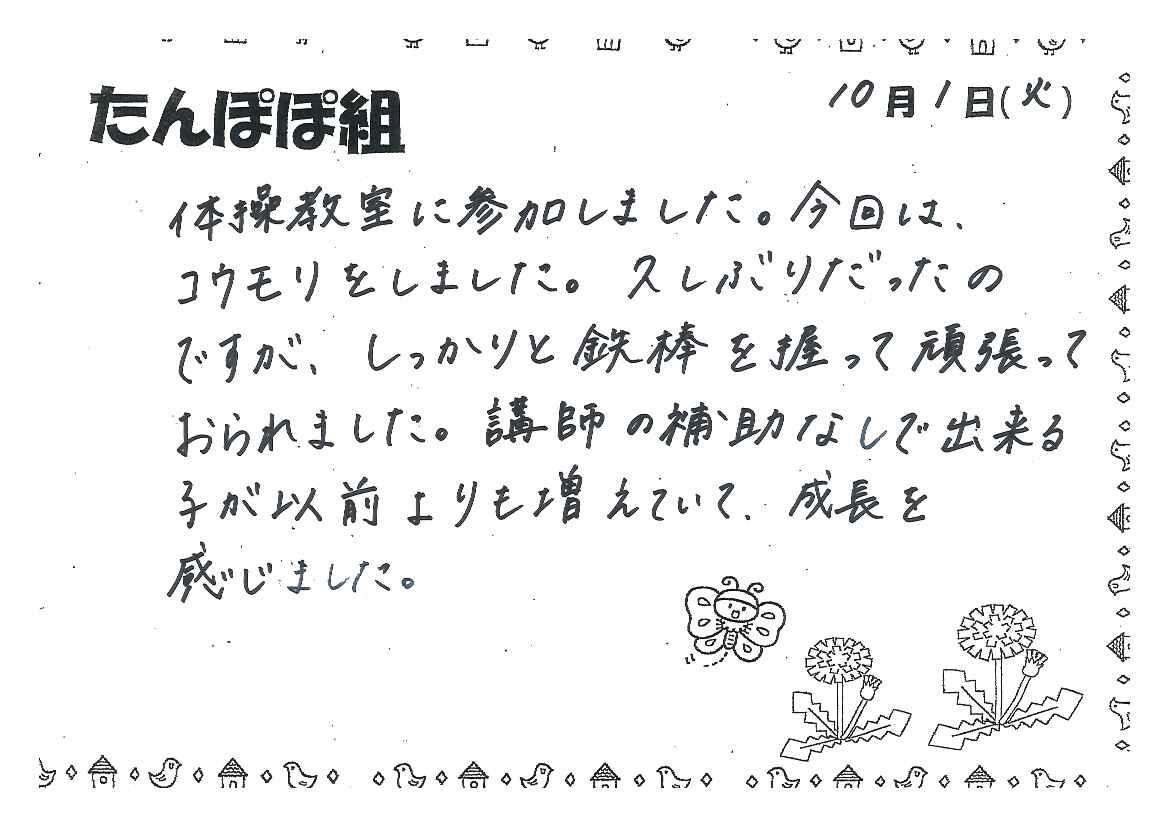 たんぽぽ組
10月1日(火)
体操教室に参加しました。今回は、
コウモリをしました。久しぶりだったの
ですが、しっかりと鉄棒を握って頑張って
おられました。講師の補助なしで出来る
子が以前よりも増えていて、成長を
感じました。